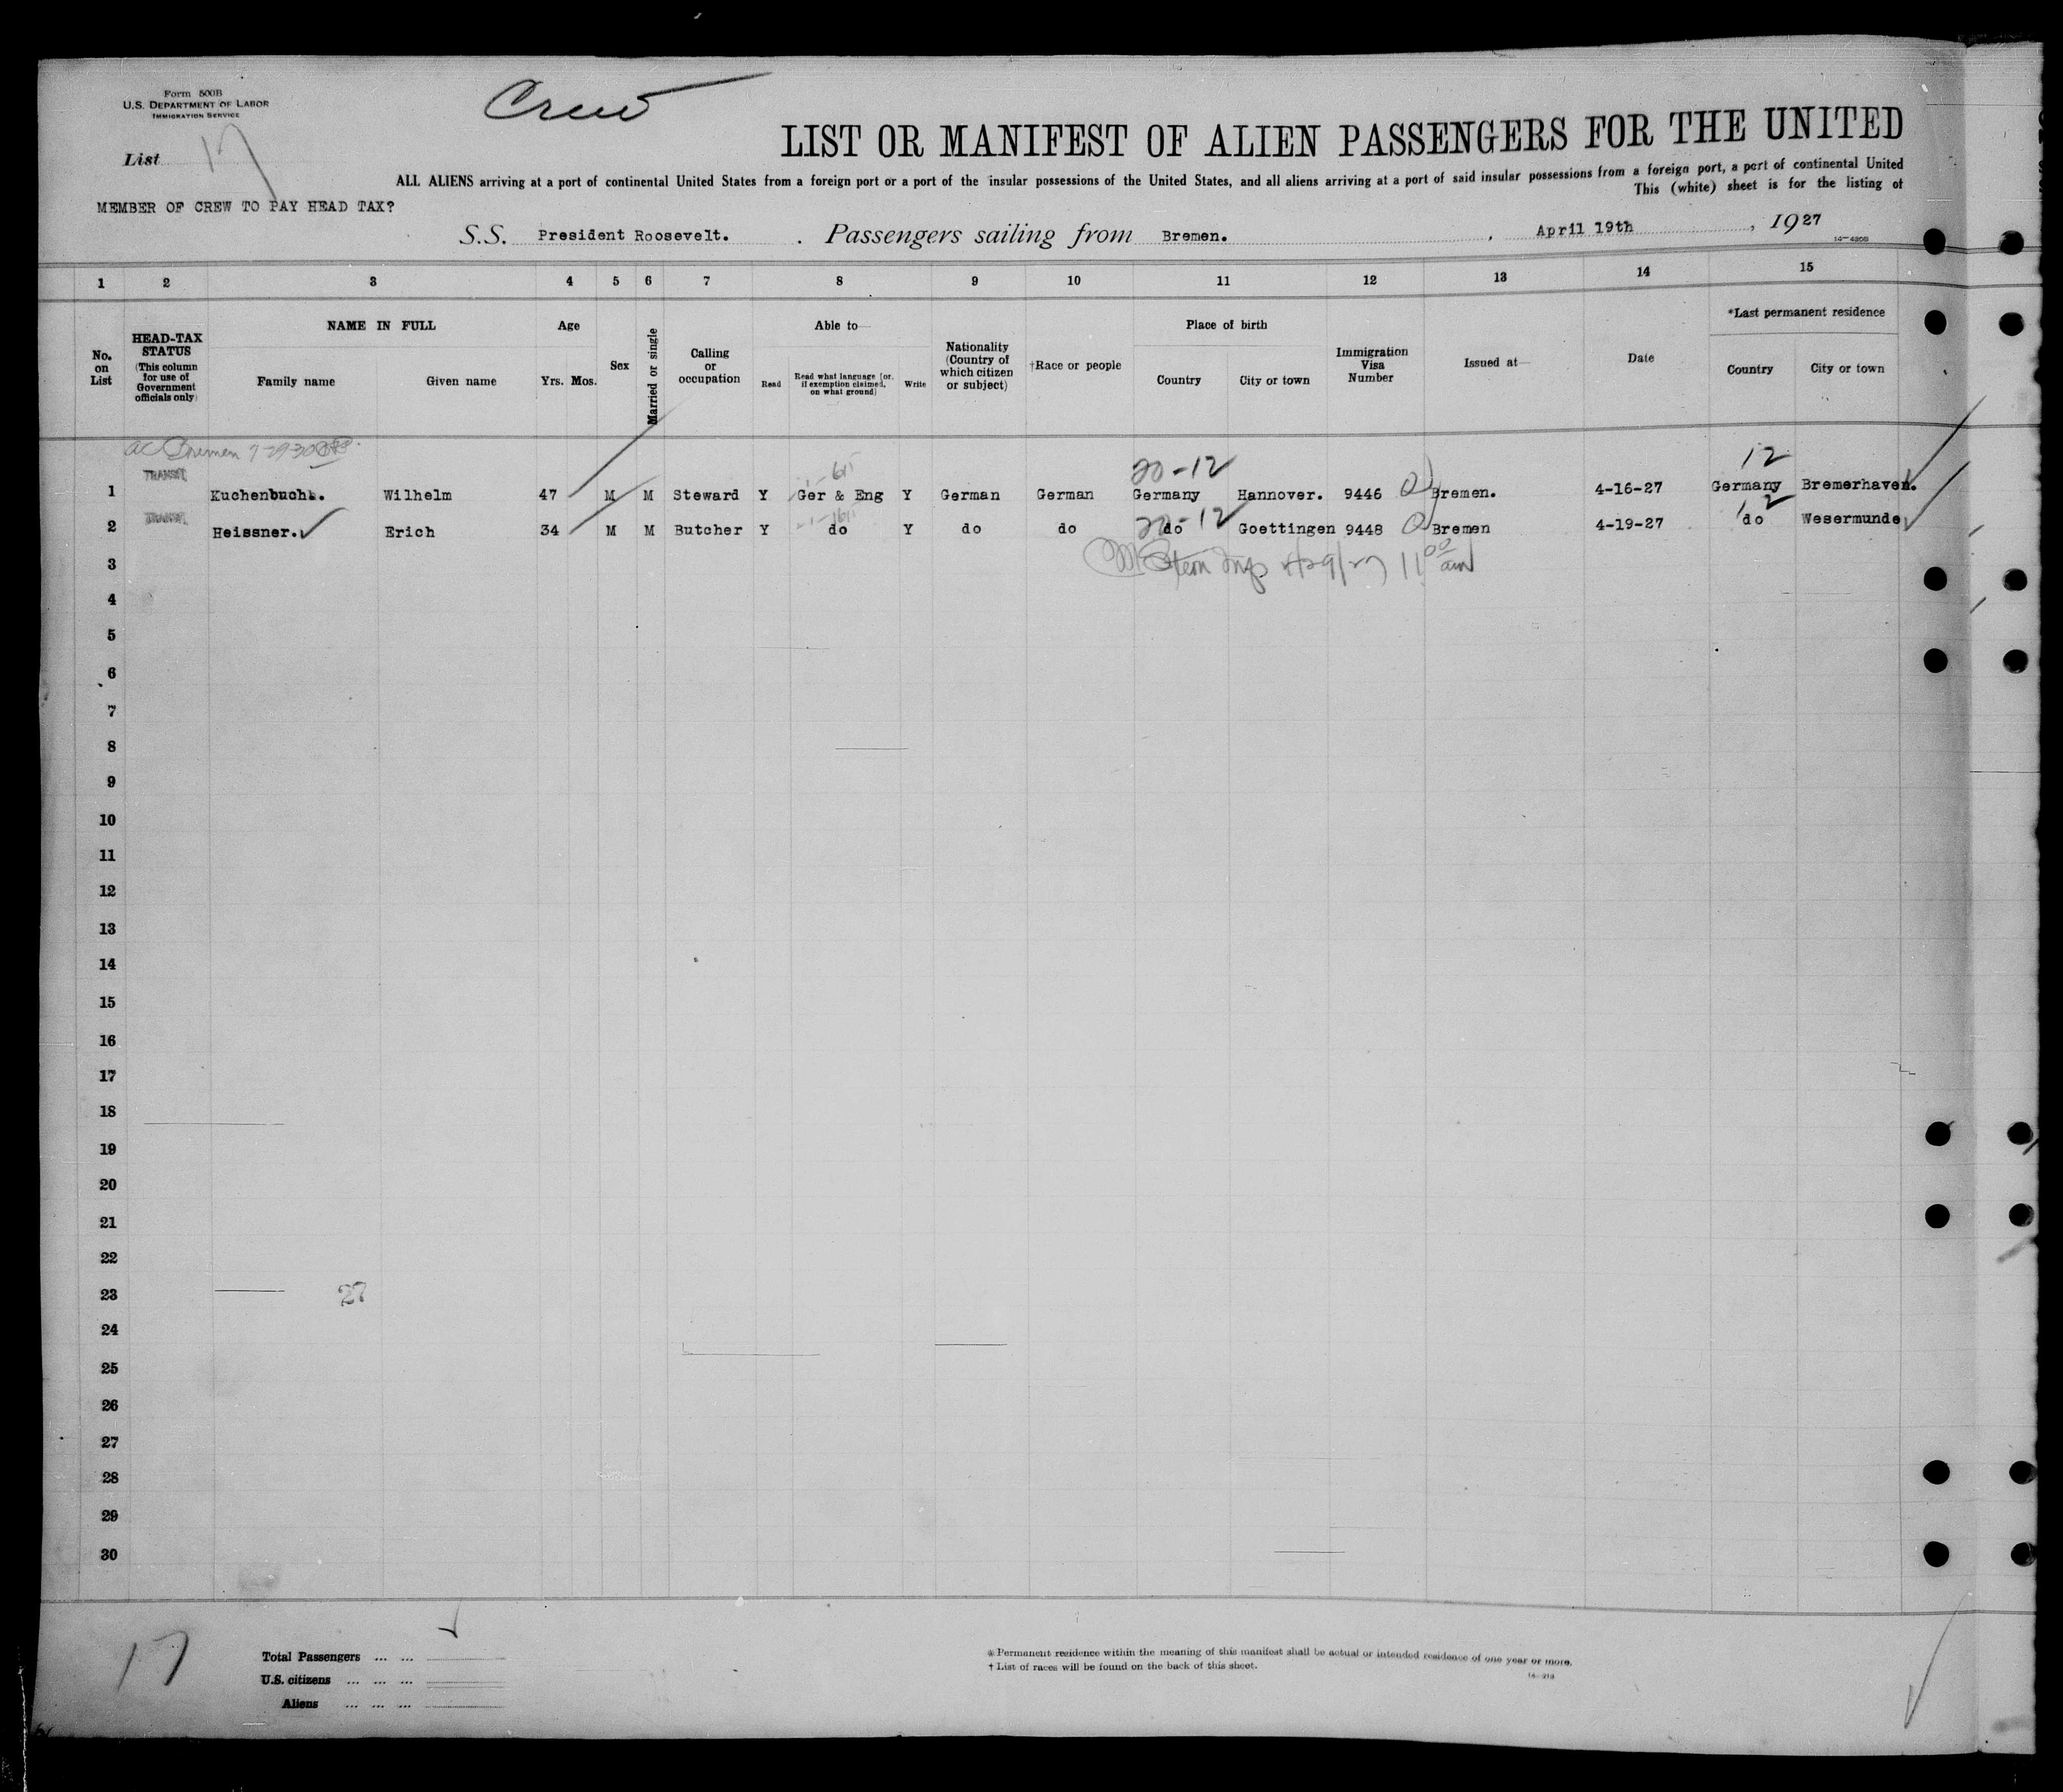 Form 500B
U.S. DEPARTMENT OF LABOR
IMMIGRATION SERVICE
Crew
List 17
LIST OR MANIFEST OF ALIEN PASSENGERS FOR THE UNITED
ALL ALIENS arriving at a port of continental United States from a foreign port or a port of the insular possessions of the United States, and all aliens arriving at a port of said insular possessions from a foreign port, a port of continental United
This (white) sheet is for the listing of
MEMBER OF CREW TO PAY HEAD TAX?
S.S. President Roosevelt. Passengers sailing from Bremen. , April 19th , 1927
14—430B
1 2 3 4 5 6 7 8 9 10 11 12 13 14 15
No. on List
HEAD-TAX STATUS (This column for use of Government officials only)
NAME IN FULL
Family name Given name
Age
Yrs. Mos.
Sex
Married or single
Calling or occupation
Able to—
Read
Read what language [or, if exemption claimed, on what ground]
Write
Nationality (Country of which citizen or subject)
†Race or people
Place of birth
Country City or town
Immigration Visa Number
Issued at—
Date
*Last permanent residence
Country City or town
Bremen
20-12 12
TRANSIT
1 Kuchenbuch. Wilhelm 47 M M Steward Y Ger & Eng Y German German Germany Hannover. 9446 Bremen. 4-16-27 Germany Bremerhaven.
TRANSIT
20-12 12
2 Heissner. Erich 34 M M Butcher Y do Y do do do Goettingen 9448 Bremen 4-19-27 do Wesermunde
11 00 am
3
4
5
6
7
8
9
10
11
12
13
14
15
16
17
18
19
20
21
22
23 27
24
25
26
27
28
29
30
17
Total Passengers ... ...
U.S. citizens ... ... ...
Aliens ... ... ...
* Permanent residence within the meaning of this manifest shall be actual or intended residence of one year or more.
† List of races will be found on the back of this sheet.